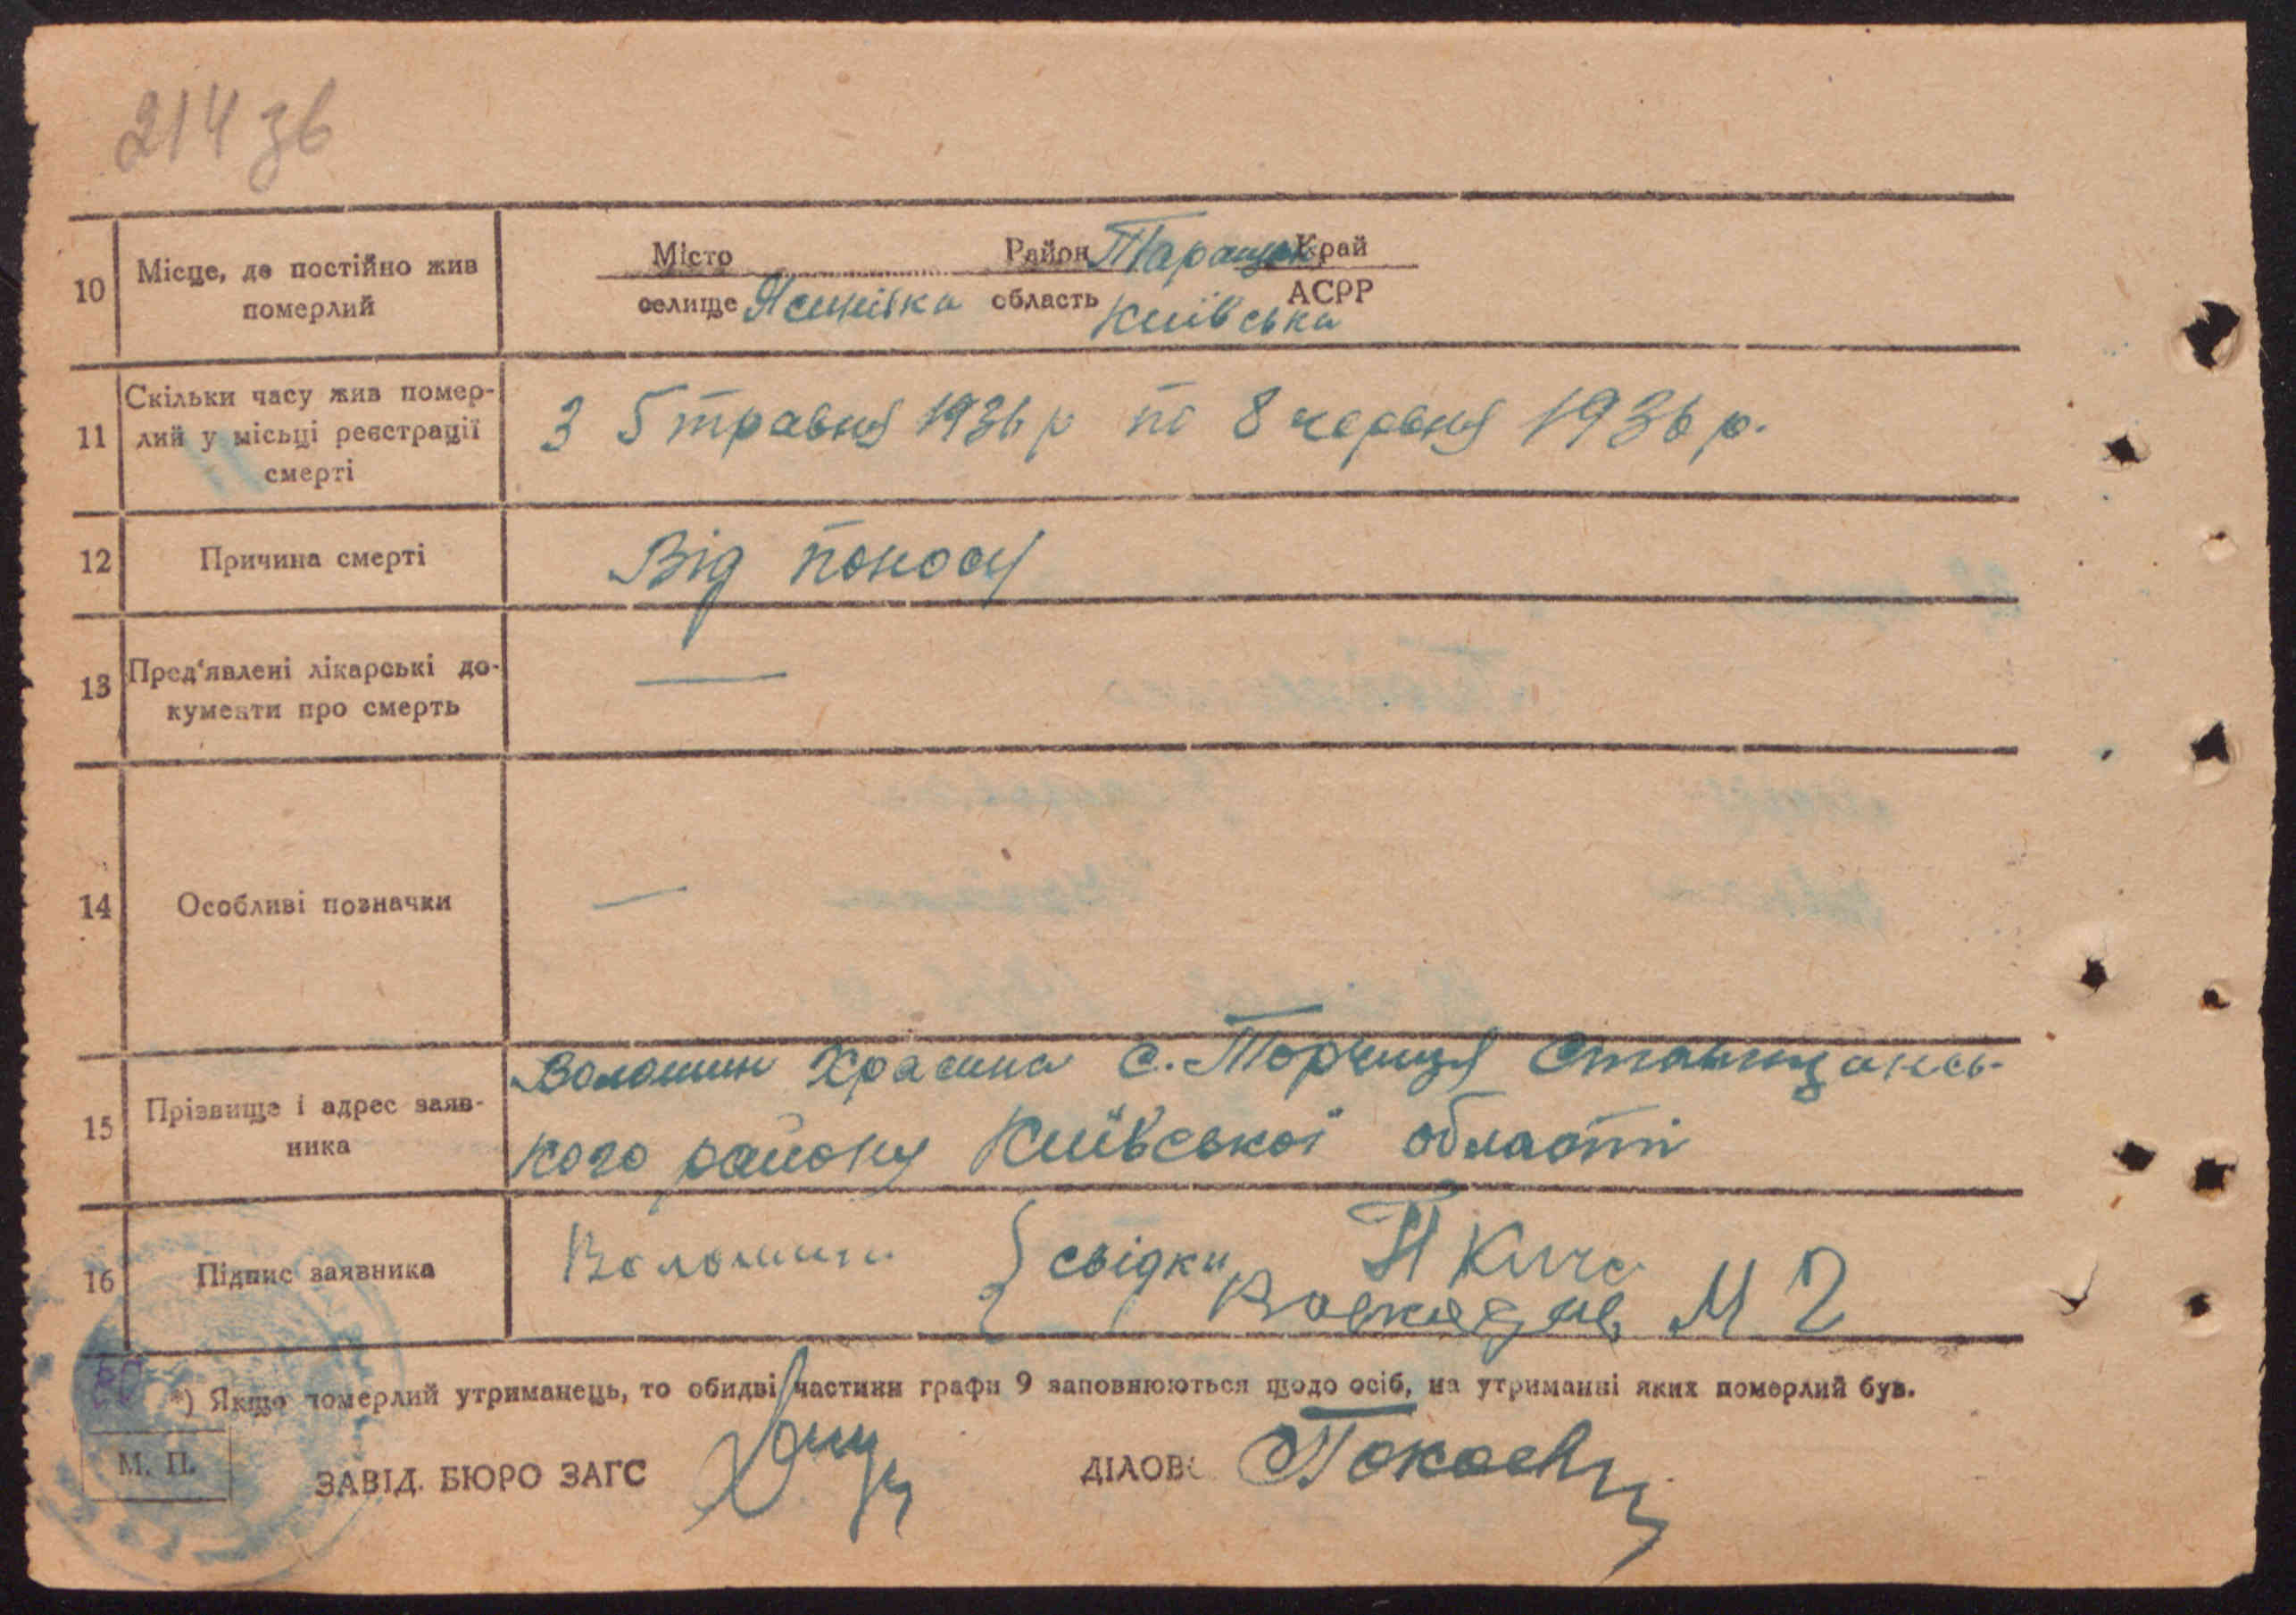 214 зв
10 Місце, де постійно жив померлий
Місто Район Таращан Край
селище Ясинівка область Київська АСРР
11 Скільки часу жив помер-
лий у місьці реєстрації
смерті
З 5 травня 1936 р по 8 червня 1936 р.
12 Причина смерті Від поносу
13 Пред'явлені лікарські до-
кументи про смерть —
14 Особливі позначки —
15 Прізвище і адрес заяв-
ника
Волошин с. Торчиця Ставищансь-
кого району Київської області
16 Підпис заявника Волошин { свідки
М
*) Якщо померлий утриманець, то обидві частини графи 9 заповнюються щодо осіб, на утриманні яких померлий був.
М. П.
ЗАВІД. БЮРО ЗАГС ДІЛОВ